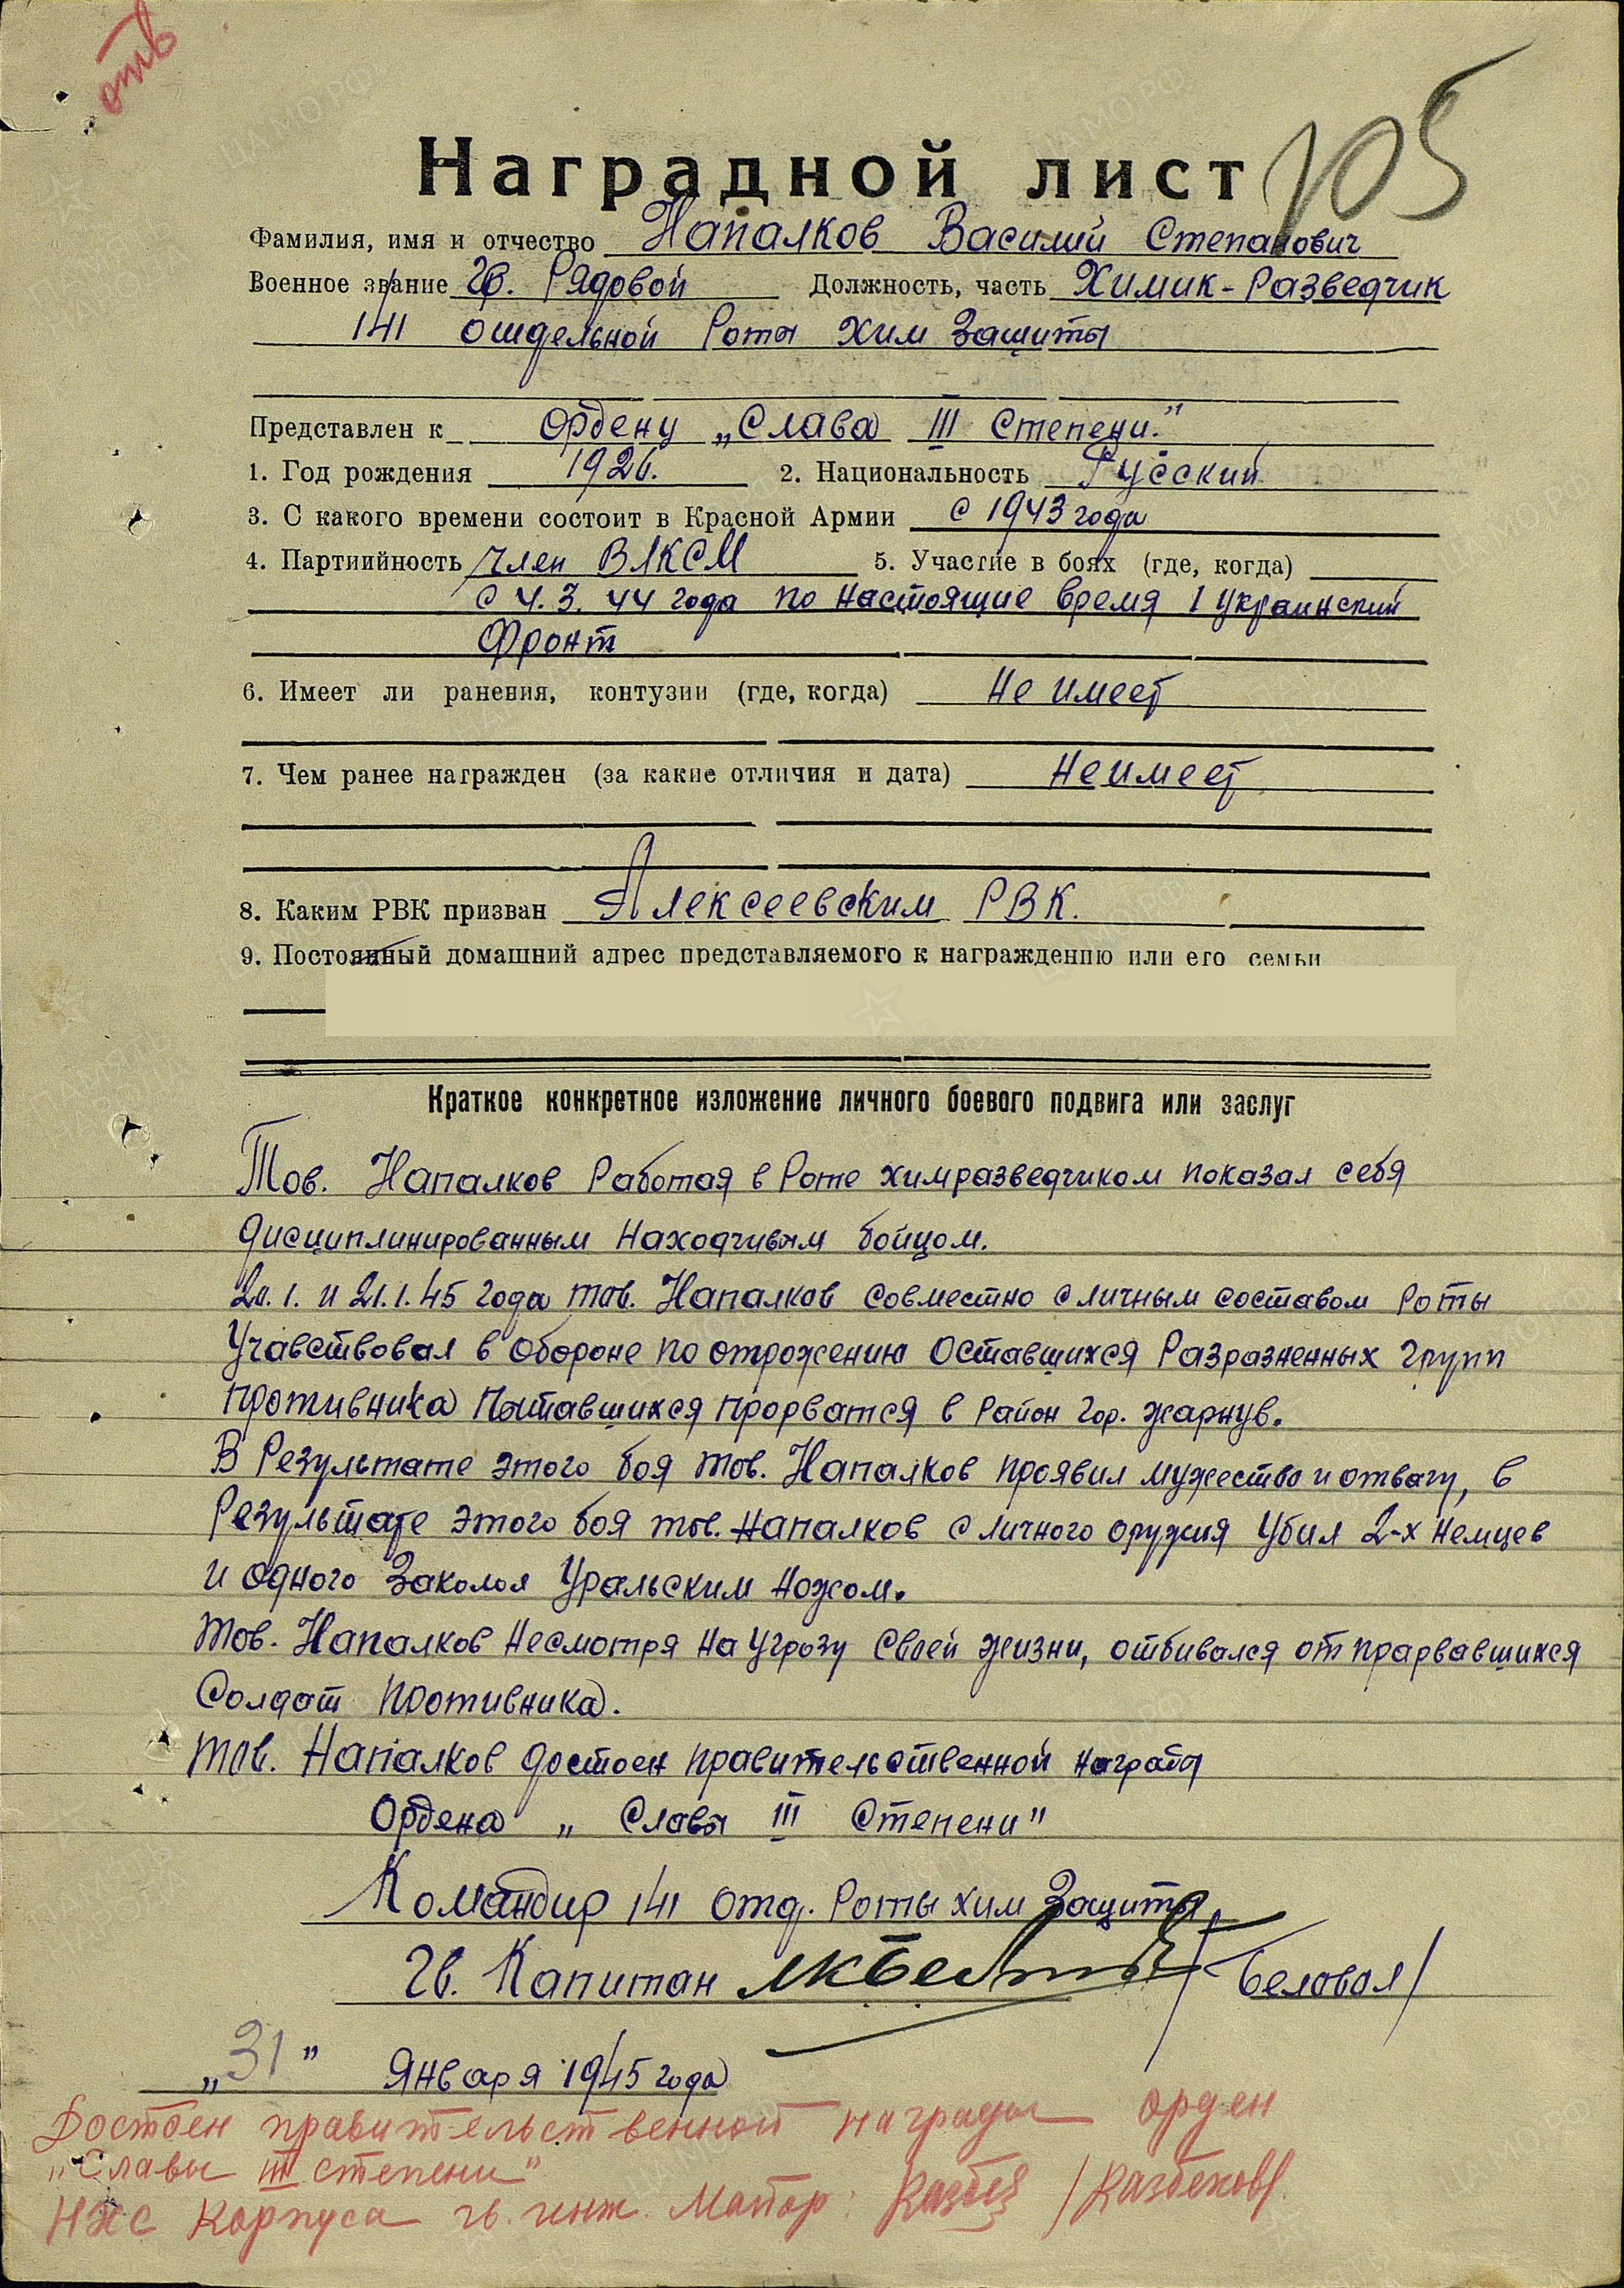 отв
Наградной лист 105
Фамилия, имя и отчество Напалков Василий Степанович
Военное звание Гв. Рядовой Должность, часть Химик-Разведчик
141 отдельной Роты Хим Защиты
Представлен к Ордену „Слава III Степени."
1. Год рождения 1926. 2. Национальность Русский
3. С какого времени состоит в Красной Армии с 1943 года
4. Партиийность Член ВЛКСМ 5. Участие в боях (где, когда)
с 4.3.44 года по настоящие время 1 Украинский
Фронт
6. Имеет ли ранения, контузии (где, когда) Не имеет
7. Чем ранее награжден (за какие отличия и дата) Не имеет
8. Каким РВК призван Алексеевским РВК.
9. Постоянный домашний адрес представляемого к награждению или его семьи
Краткое конкретное изложение личного боевого подвига или заслуг
Тов. Напалков Работая в Роте химразведчиком показал себя
дисциплинированным Находчивым бойцом.
20.1. и 21.1.45 года тов. Напалков совместно с личным составом Роты
Учавствовал в обороне по отрожению Оставшихся Разразненных групп
противника Пытавшихся прорватся в Район гор. Жарнув.
В Результате этого боя тов. Напалков проявил мужество и отвагу, в
Результате этого боя тов. Напалков с личного оружия Убил 2-х немцев
и одного Заколол Уральским Ножом.
Тов. Напалков Несмотря на Угрозу Своей жизни, отбивался от прарвавшихся
Солдат противника.
тов. Напалков достоен правительственной награды
Ордена „ Славы III Степени"
Командир 141 отд. Роты хим Защиты
Гв. Капитан /Беловол/
„31" Января 1945 года
Достоен правительственной награды орден
„Славы III степени"
НХС Корпуса гв. инж. Майор: /Казбеков/.
ЦАМО.РФ